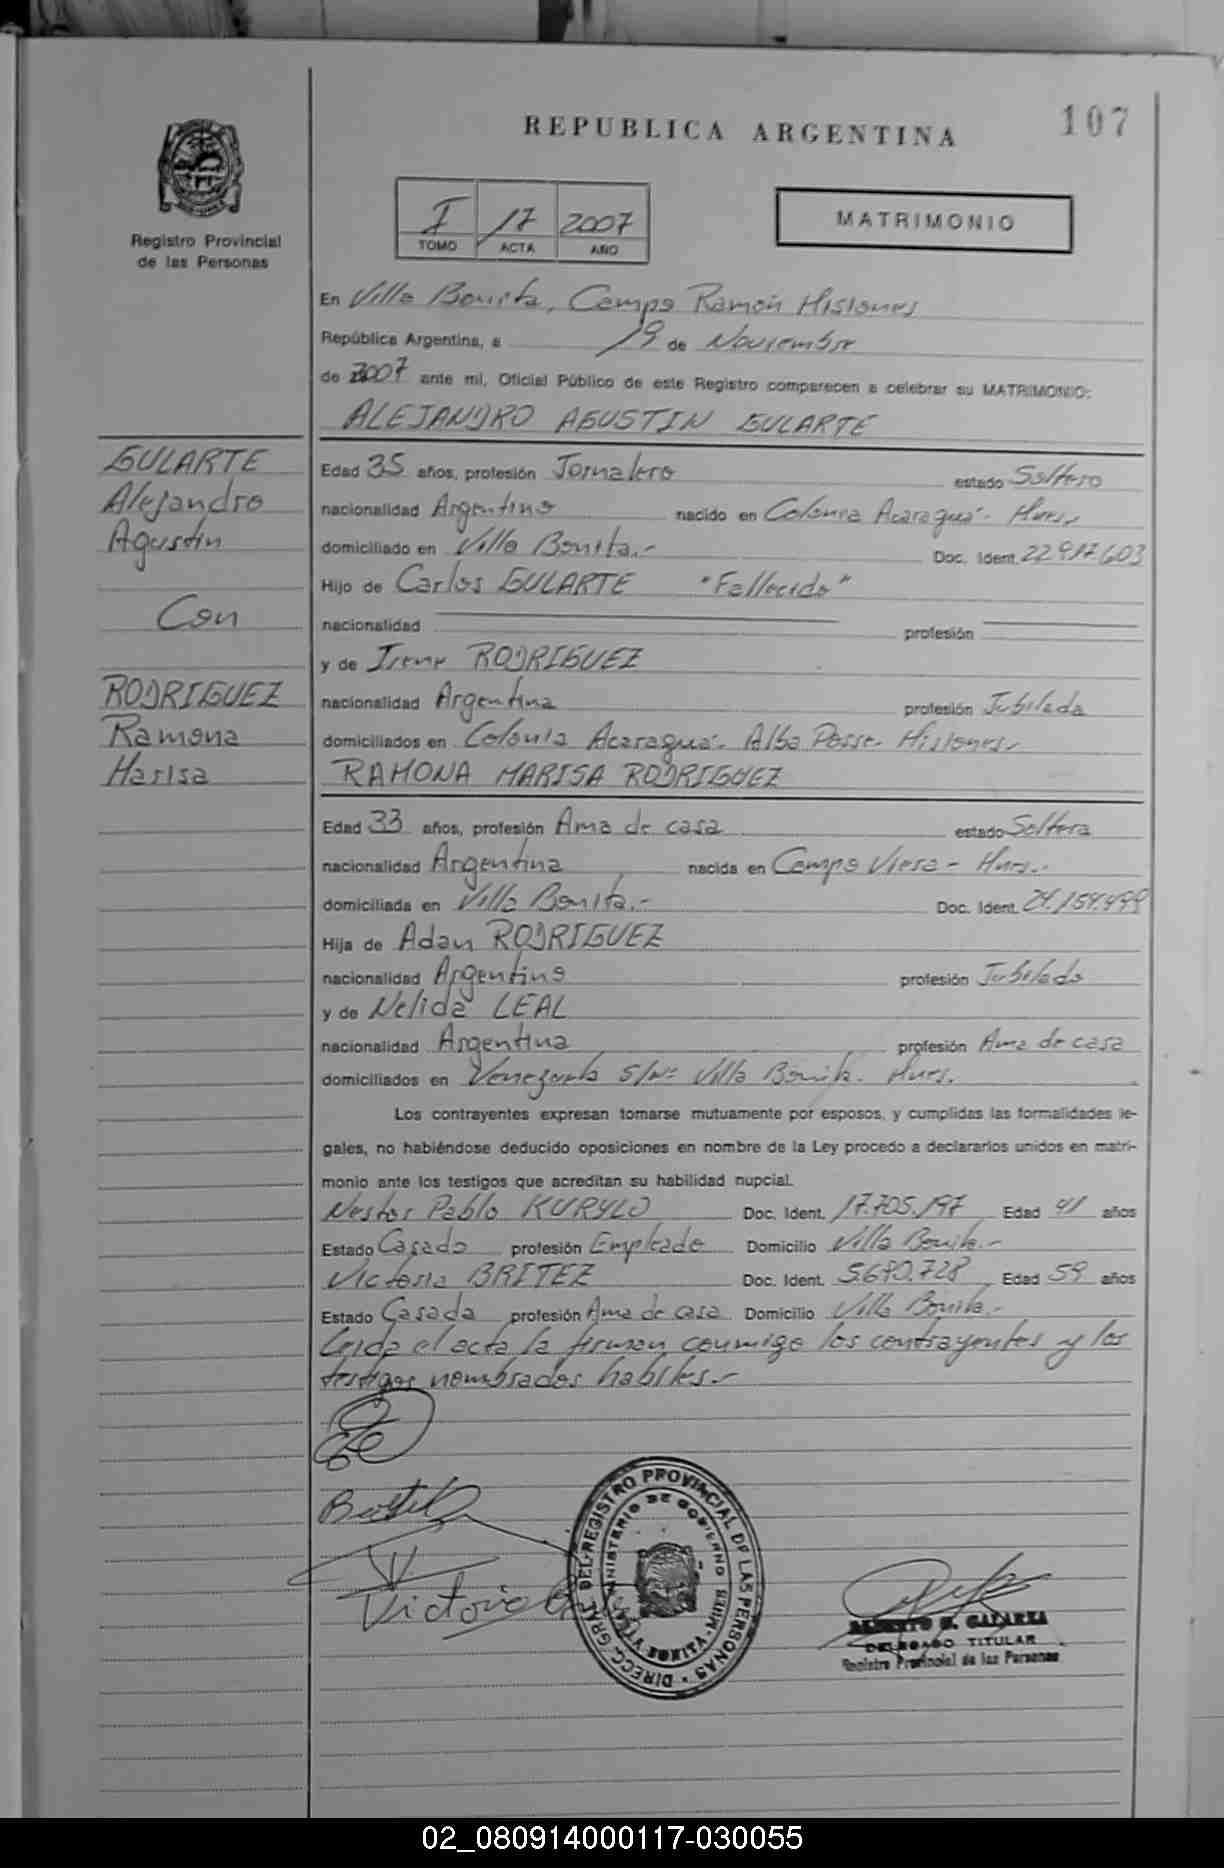 107
REPUBLICA ARGENTINA
Registro Provincial
de las Personas
I 17 2007
TOMO ACTA AÑO
MATRIMONIO
En Villa Bonita, Campo Ramón Misiones
República Argentina, a 19 de Noviembre
de 2007 ante mi, Oficial Público de este Registro comparecen a celebrar su MATRIMONIO:
ALEJANDRO AGUSTIN GULARTE
GULARTE
Alejandro
Agustin
Con
RODRIGUEZ
Ramona
Marisa
Edad 35 años, profesión Jornalero estado Soltero
nacionalidad Argentino nacido en Colonia Acaraguá- Mnes.
domiciliado en Villa Bonita.- Doc. Ident. 22.917.603
Hijo de Carlos GULARTE "Fallecido"
nacionalidad profesión
y de Irene RODRIGUEZ
nacionalidad Argentina profesión Jubilada
domiciliados en Colonia Acaraguá- Alba Posse- Misiones.
RAMONA MARISA RODRIGUEZ
Edad 33 años, profesión Ama de casa estado Soltera
nacionalidad Argentina nacida en Campo Viera - Mnes.-
domiciliada en Villa Bonita.- Doc. Ident. 24.154.499
Hija de Adan RODRIGUEZ
nacionalidad Argentino profesión Jubilado
y de Nelida LEAL
nacionalidad Argentina profesión Ama de casa
domiciliados en Venezuela S/Nº Villa Bonita- Mnes.
Los contrayentes expresan tomarse mutuamente por esposos, y cumplidas las formalidades le-
gales, no habiéndose deducido oposiciones en nombre de la Ley procedo a declararlos unidos en matri-
monio ante los testigos que acreditan su habilidad nupcial.
Nestor Pablo KURYLO Doc. Ident. 17.705.197 Edad 41 años
Estado Casado profesión Empleado Domicilio Villa Bonita.-
Victoria BRITEZ Doc. Ident. 5.690.728 Edad 59 años
Estado Casada profesión Ama de casa Domicilio Villa Bonita.-
Leida el acta la firman conmigo los contrayentes y los
testigos nombrados habiles.-
Victoria
DIRECC. GRAL. DEL REGISTRO PROVINCIAL DE LAS PERSONAS
MINISTERIO DE GOBIERNO
VILLA BONITA - MNES
DELEGADO TITULAR
Registro Provincial de las Personas
02_080914000117-030055